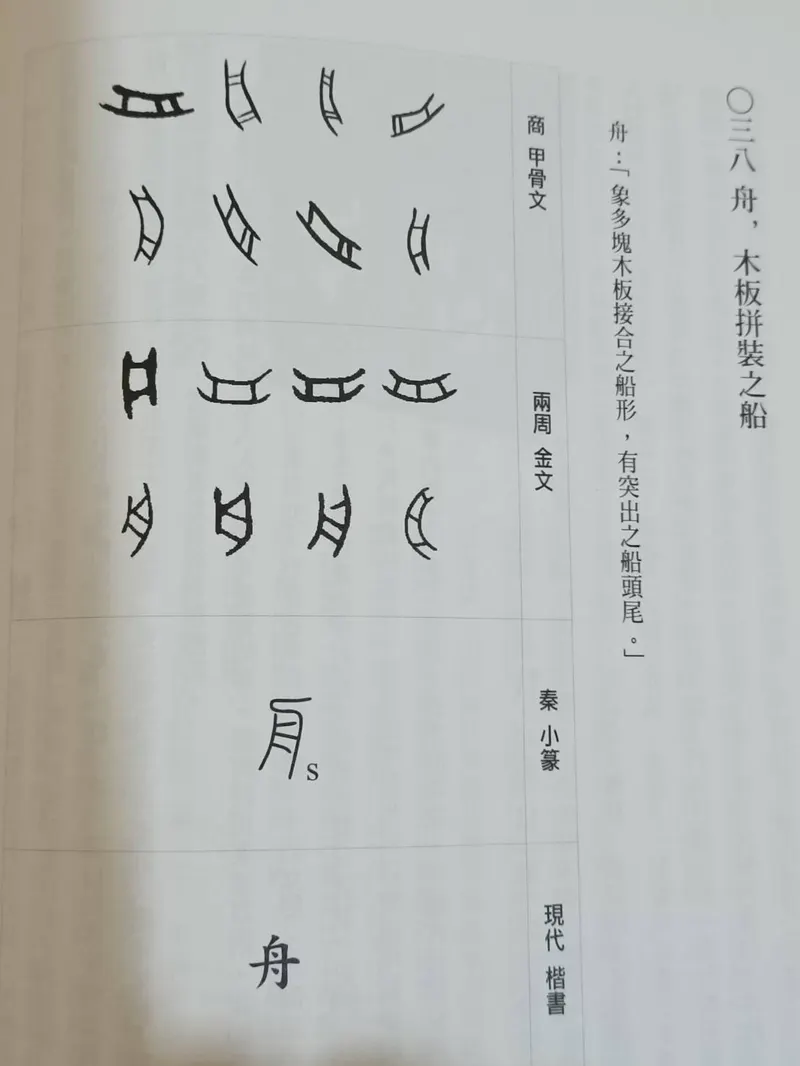 〇三八 舟，木板拼裝之船
舟：「象多塊木板接合之船形，有突出之船頭尾。」
商 甲骨文
兩周 金文
秦 小篆
S
現代 楷書
舟